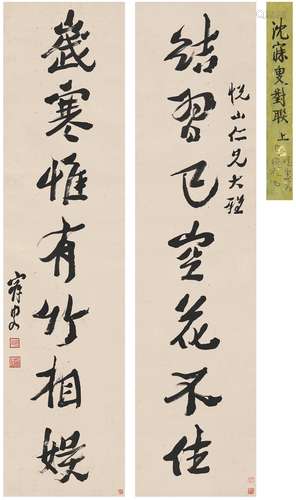 沈寐叟對聯 上
結習已空花不住
悅山仁兄大雅
歲寒惟有竹相娛
寐叟